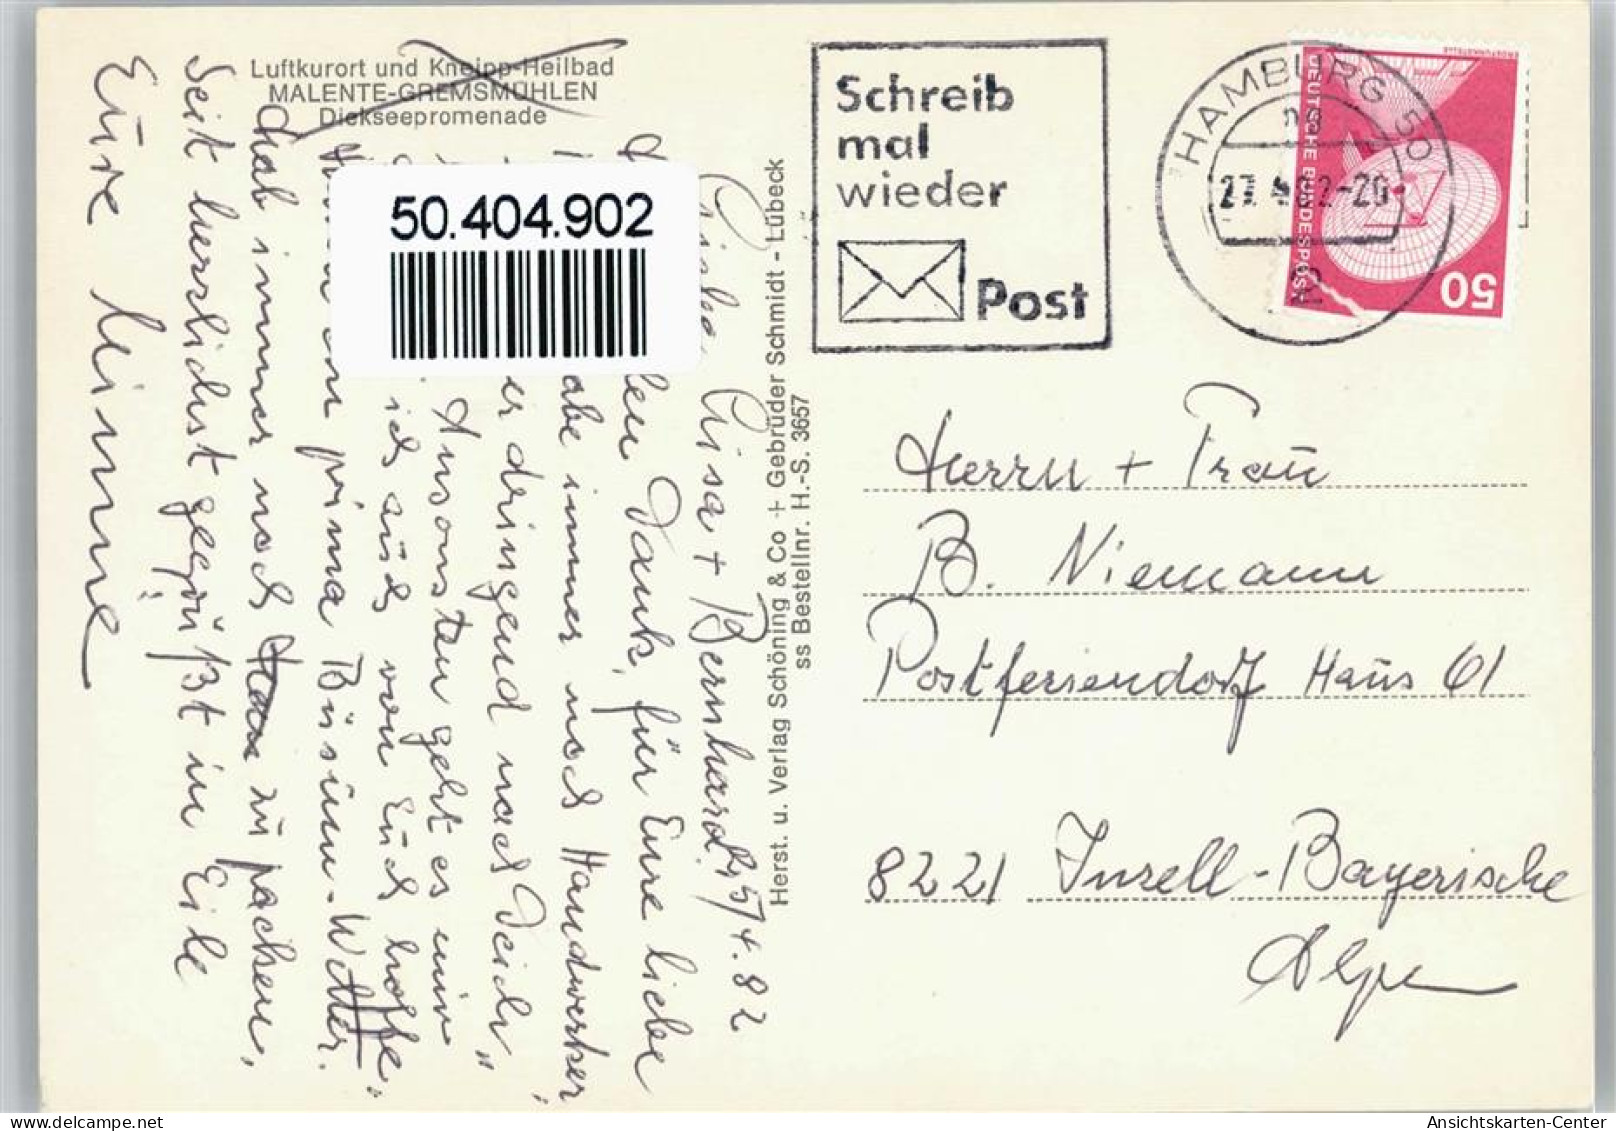 Luftkurort und Kneipp-Heilbad
MALENTE-GREMSMÜHLEN
Diekseepromenade
50.404.902
Schreib
mal
wieder
Post
HAMBURG 50
27.4.82-20
DEUTSCHE BUNDESPOST
ERDEFUNKSTELLE
50
Herst. u. Verlag Schöning & Co + Gebrüder Schmidt - Lübeck
ss Bestellnr. H.-S. 3657
25/4.82
Lisa + Bernhard,
Dank, für Eure liebe
immer noch Handwerker,
dringend nach Deich"
Ansonsten geht es mir
ich auch von Euch hoffe.
prima Büsum-Wetter.
Hab immer noch zu packen,
Seit herzlichst gegrüßt in Eile
Eure Minne
Herrn + Frau
B. Niemann
Postferiendorf Haus 61
8221 Inzell-Bayerische
Alpen
Ansichtskarten-Center